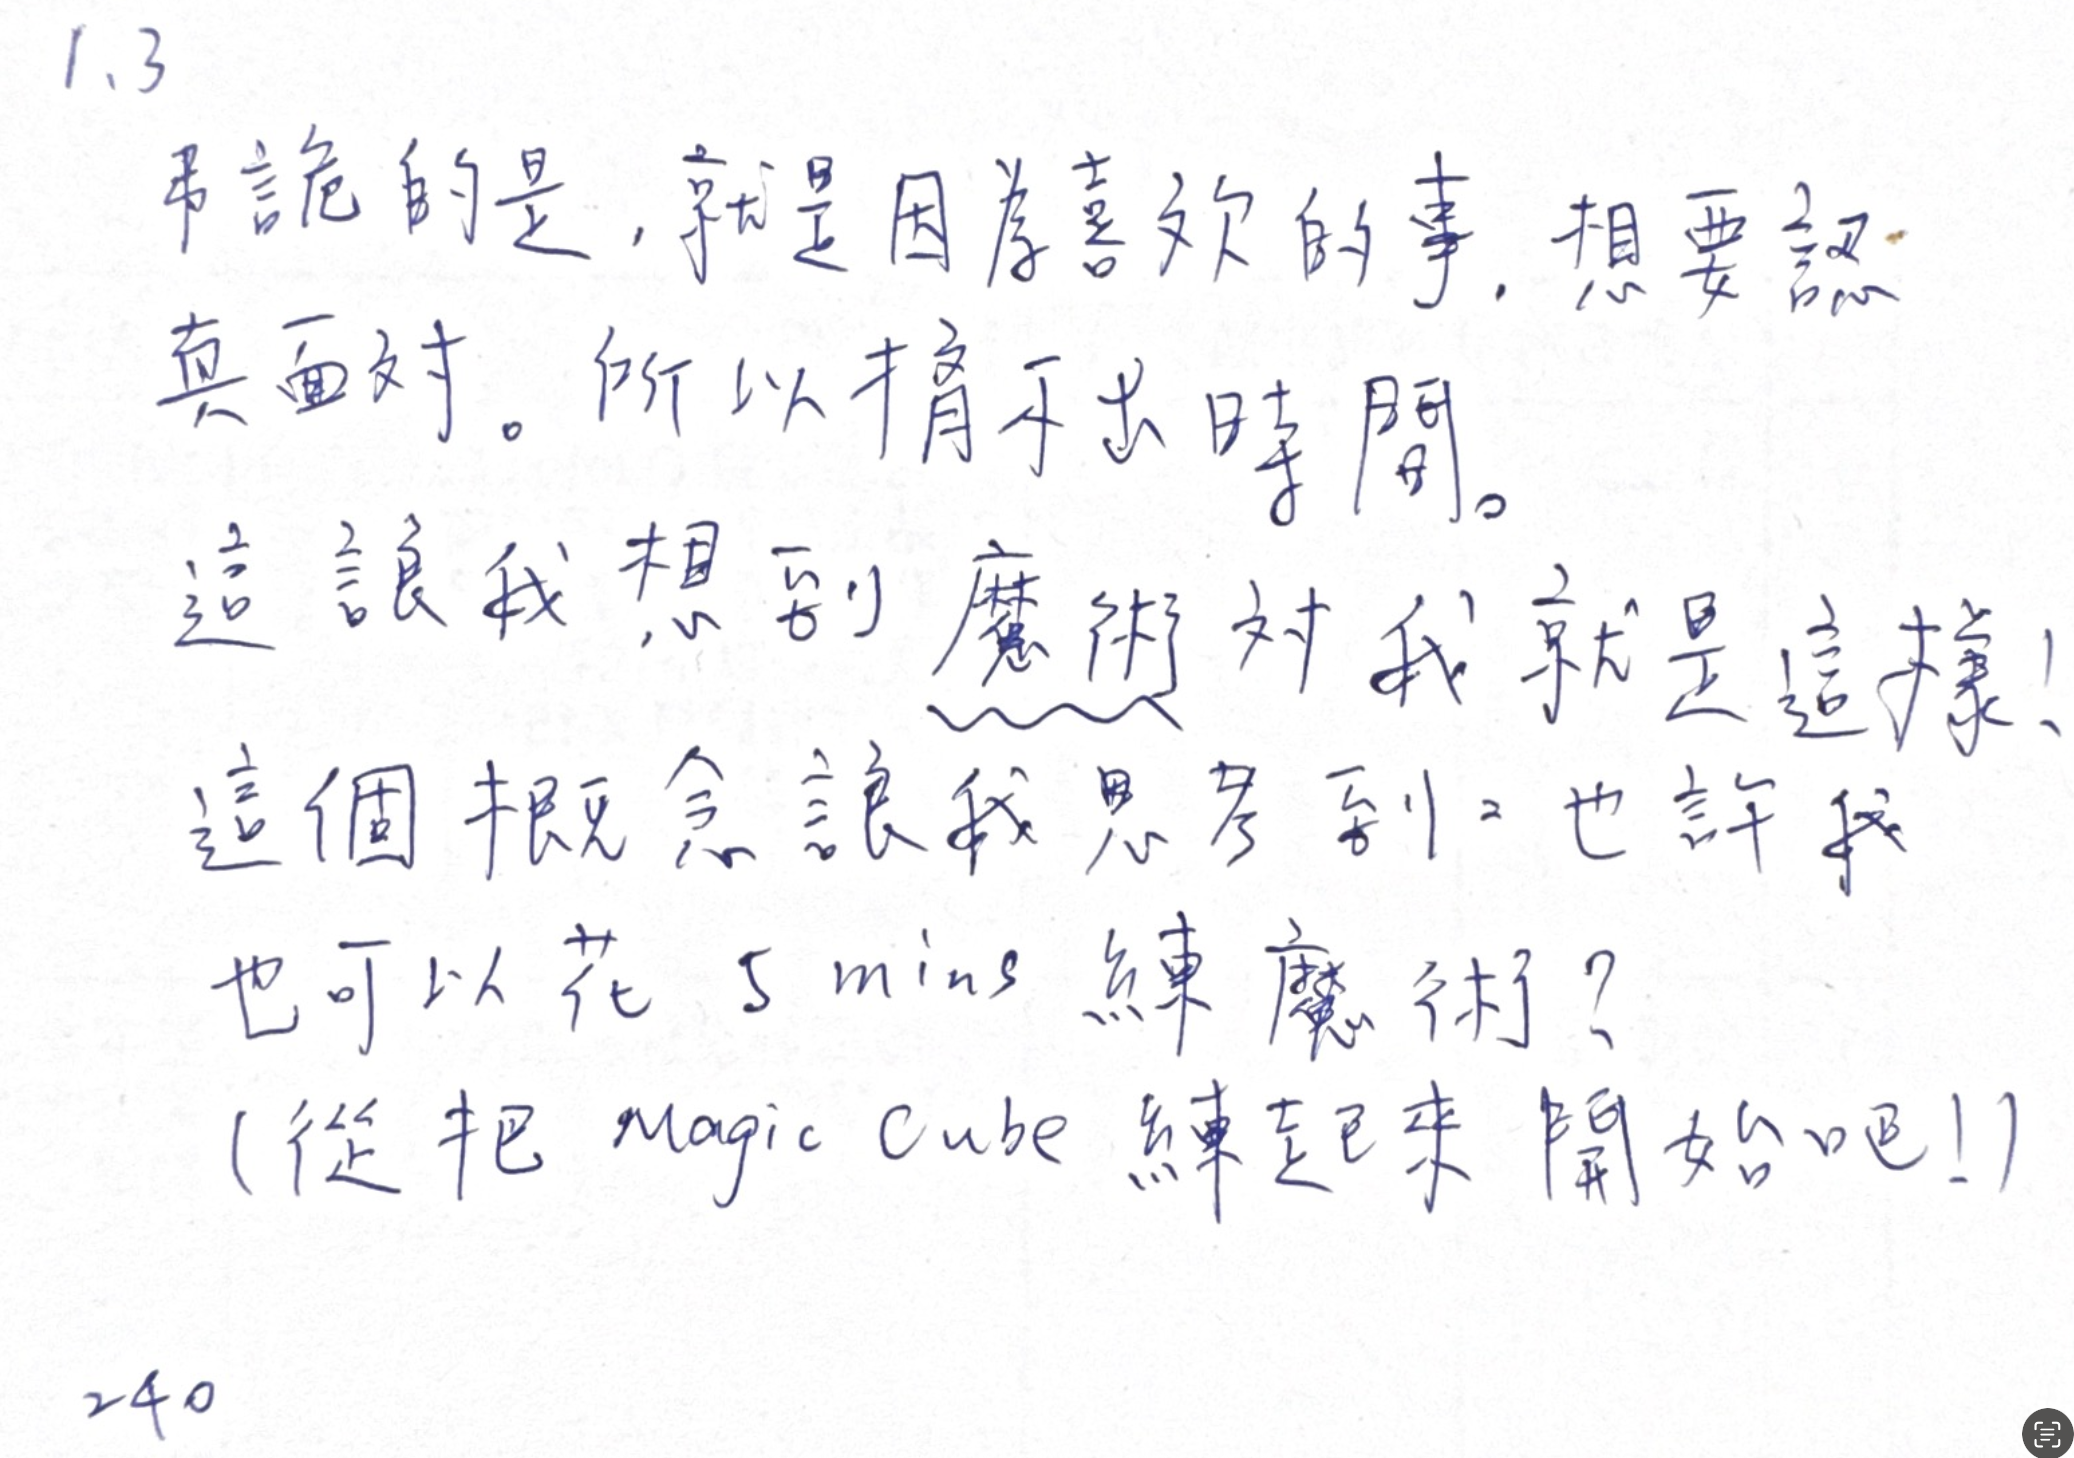 1、3
弔詭的是，就是因為喜欢的事，想要認
真面对。所以擠不出時間。
這讓我想到魔術对我就是這樣！
這個概念讓我思考到：也許我
也可以花 5 mins 練魔術？
（從把 Magic Cube 練起來開始吧！）
240